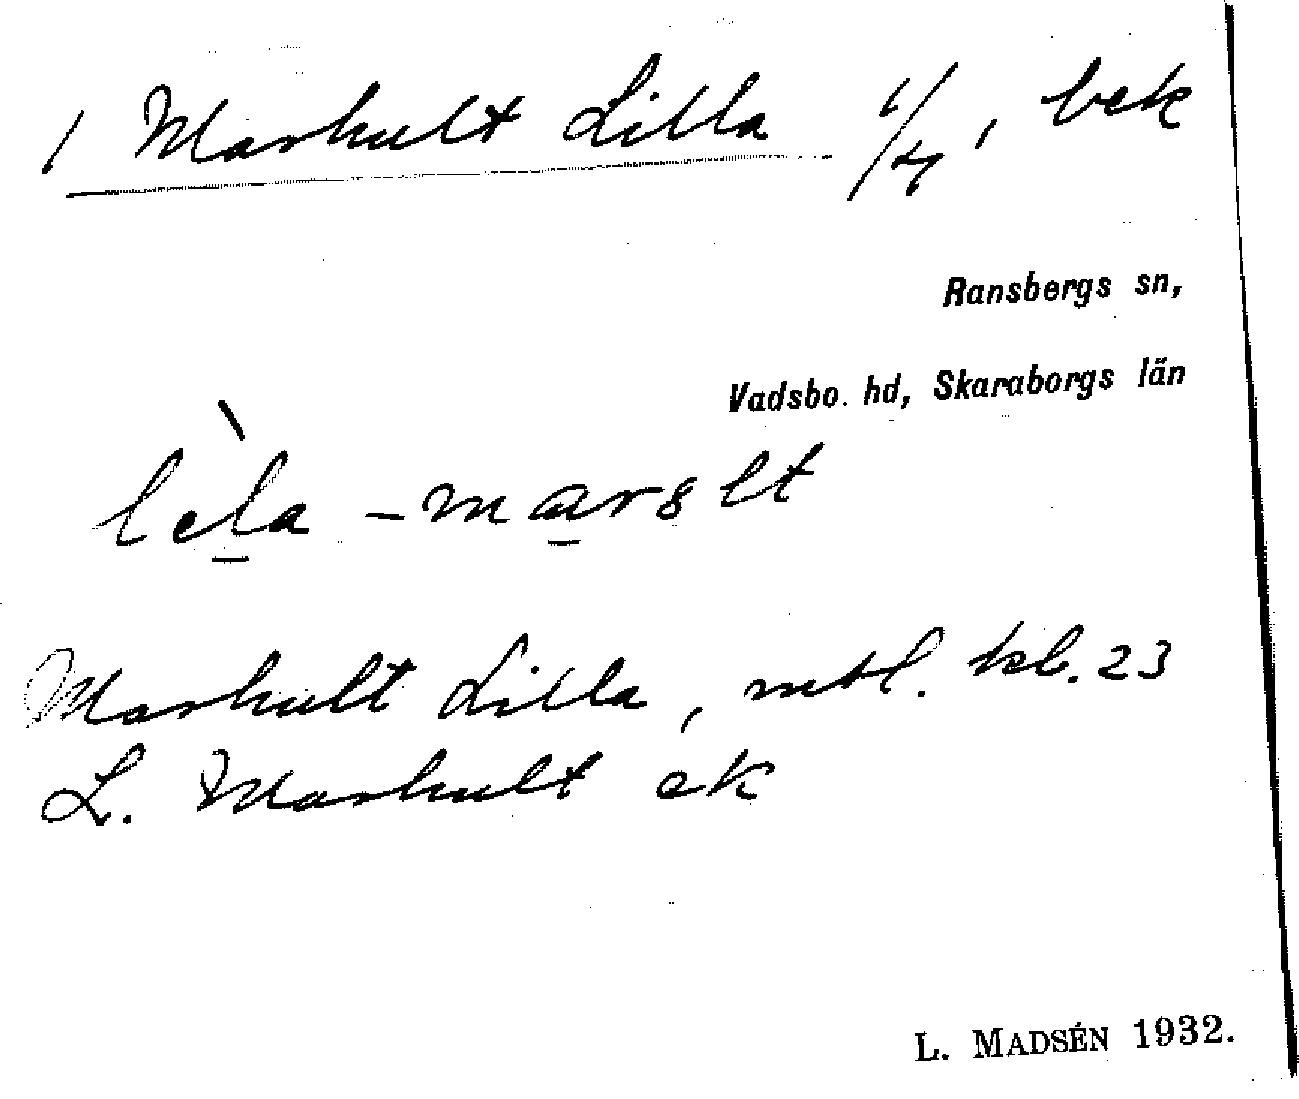 1 Marhult Lilla 1/4, bek
Ransbergs sn,
Vadsbo hd, Skaraborgs län
lèla - marslt
Marhult Lilla, mbl. kb. 23
L. Marhult ek
L. MADSÉN 1932.